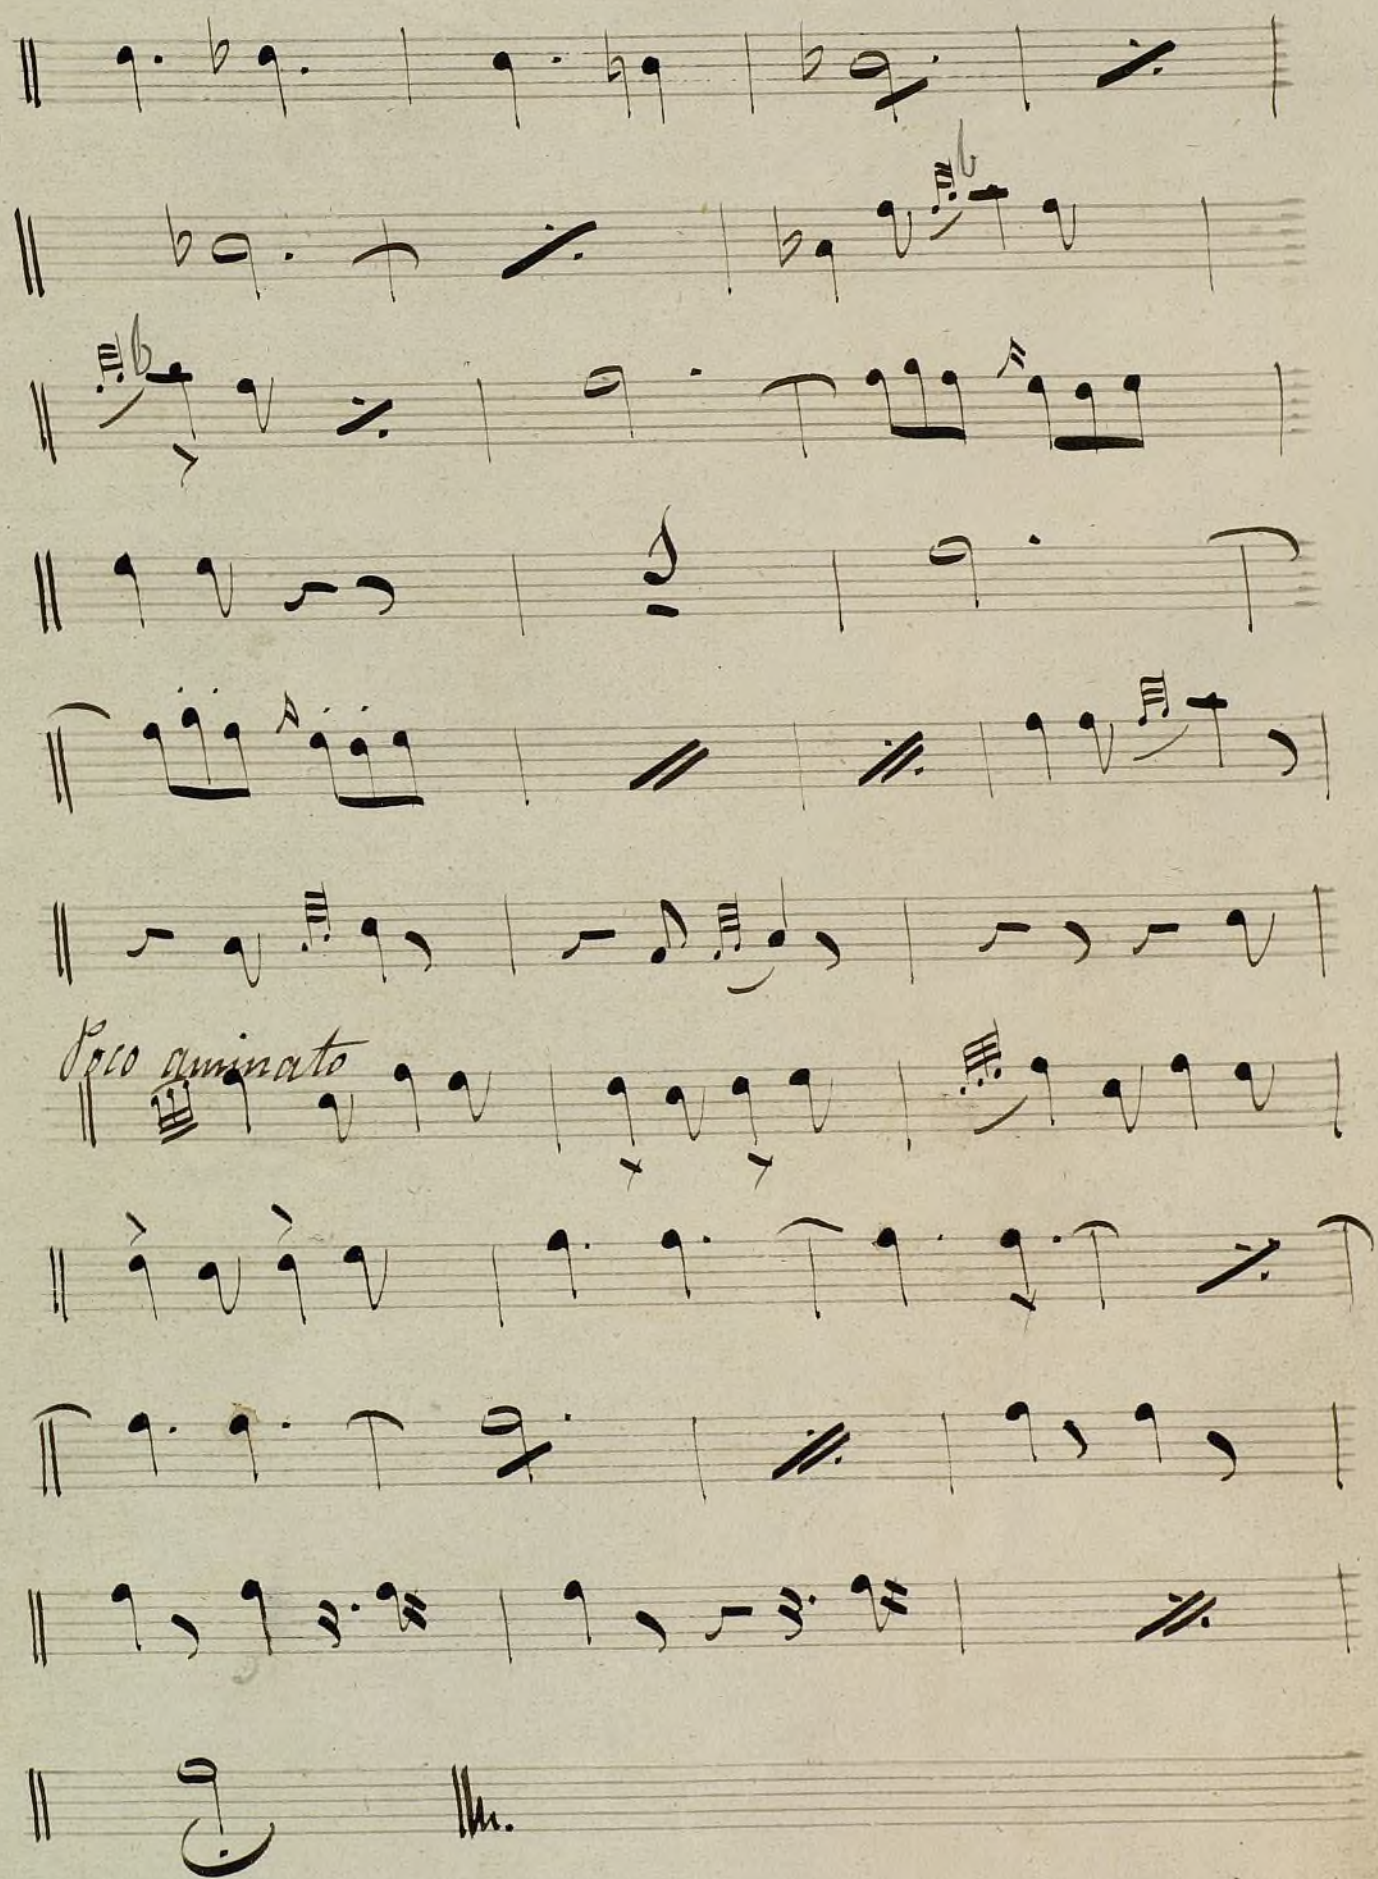 Poco aminato